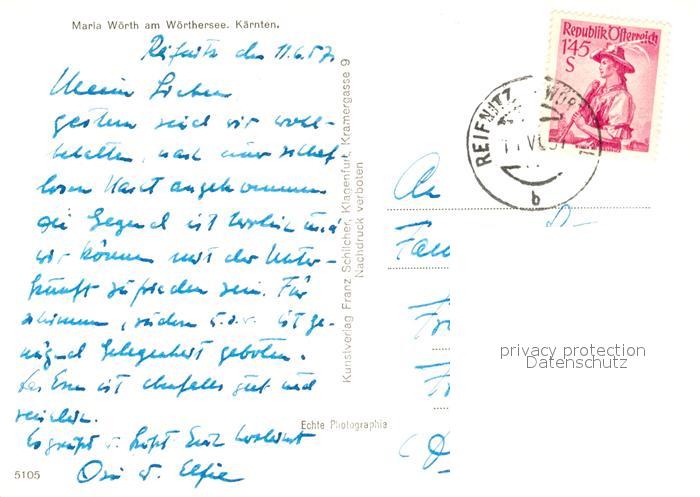 Maria Wörth am Wörthersee. Kärnten.
Reifnitz den 11.6.57.
Meine Lieben
gestern sind wir wohl-
behalten, nach einer schlaf
losen Nacht angekommen
die Gegend ist herrlich und
wir können mit der Unter-
kunft zufrieden sein. Für
schwimmen, rudern u.s.w. ist ge-
nügend Gelegenheit geboten.
Das Essen ist ebenfalls gut und
reichlich.
Es grüßt u. küßt Euch
u. Elfie
5105
Echte Photographie
Kunstverlag Franz Schilcher, Klagenfurt, Kramergasse 9
Nachdruck verboten
Republik Österreich
1'45
S
REIFNITZ
b
An
privacy protection
Datenschutz